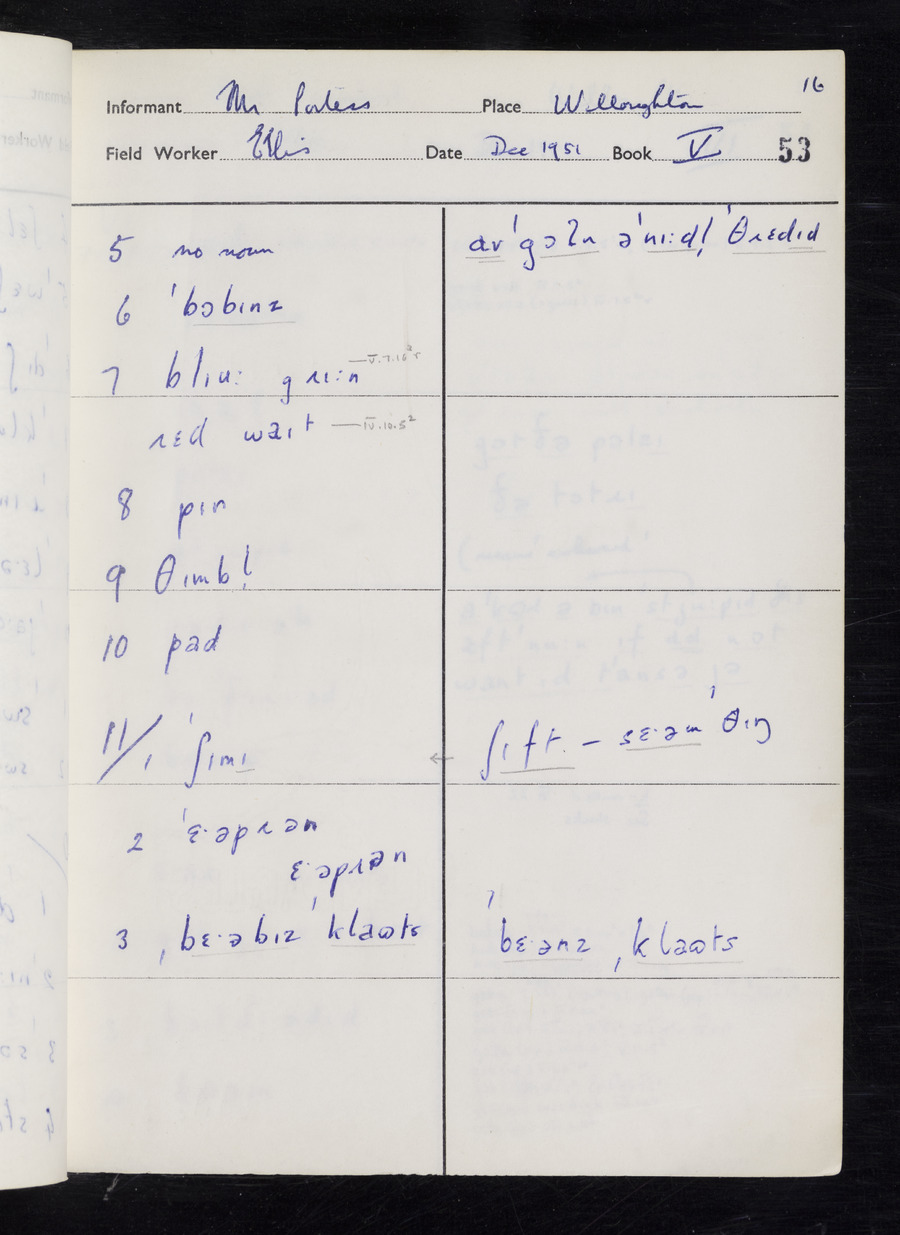 16
Informant Mr Porters Place Willoughton
Field Worker Ellis Date Dec 1951 Book V 53
5 no noun
av ˈgɔʔn əˈnɪ:dl̩ ˈθɹɛdɪd
6 ˈbɔbɪnz
7 blɪu: gɹɪ:n
ɹɛd waɪt — IV.10.5²
8 pɪn
9 θɪmbl̩
10 pad
11/1 ˈʃɪmɪ
← ʃɪft – sɛ·əm ˈθɪŋ
2 ˈɛ·əpɹən
ɛ·əpɹən
3 ˌbɛ·əbɪz ˈklaʊts
ˈbɛ·ənz ˌklaʊts